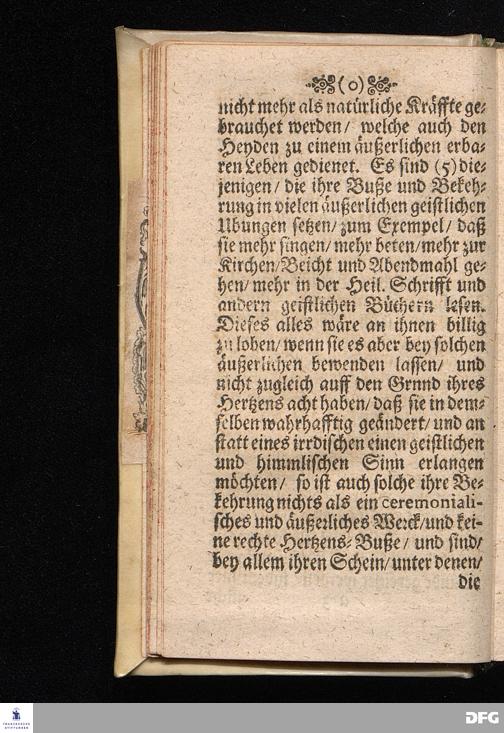 (o)
nicht mehr als natürliche Kräffte ge-
brauchet werden/ welche auch den
Heyden zu einem äußerlichen erba-
ren Leben gedienet. Es sind (5) die-
jenigen/ die ihre Buße und Bekeh-
rung in vielen äußerlichen geistlichen
Ubungen setzen/ zum Exempel/ daß
sie mehr singen/ mehr beten/ mehr zur
Kirchen/ Beicht und Abendmahl ge-
hen/ mehr in der Heil. Schrifft und
andern geistlichen Büchern lesen.
Dieses alles wäre an ihnen billig
zu loben/ wenn sie es aber bey solchen
äußerlichen bewenden lassen/ und
nicht zugleich auff den Grnnd ihres
Hertzens acht haben/ daß sie in dem-
selben wahrhafftig geändert/ und an
statt eines irrdischen einen geistlichen
und himmlischen Sinn erlangen
möchten/ so ist auch solche ihre Be-
kehrung nichts als ein ceremoniali-
sches und äußerliches Werck/ und kei-
ne rechte Hertzens-Buße/ und sind/
bey allem ihren Schein/ unter denen/
die
FRANCKESCHE
STIFTUNGEN
DFG